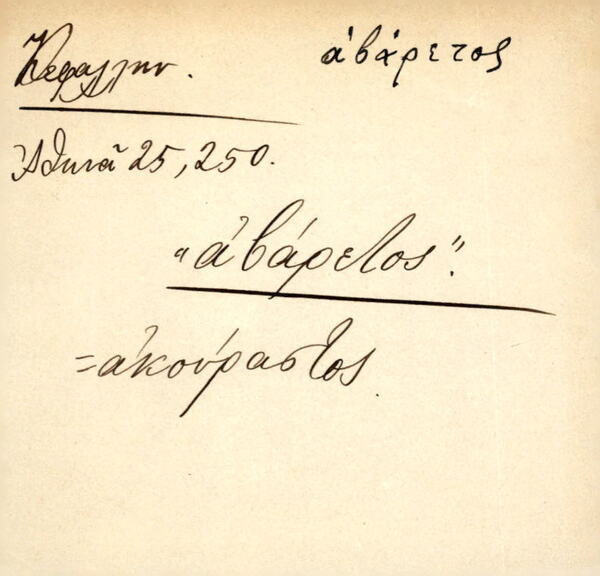 Κεφαλλην.
ἀβάρετος
Ἀθηνᾶ 25, 250.
"ἀβάρετος".
=ἀκούραστος.